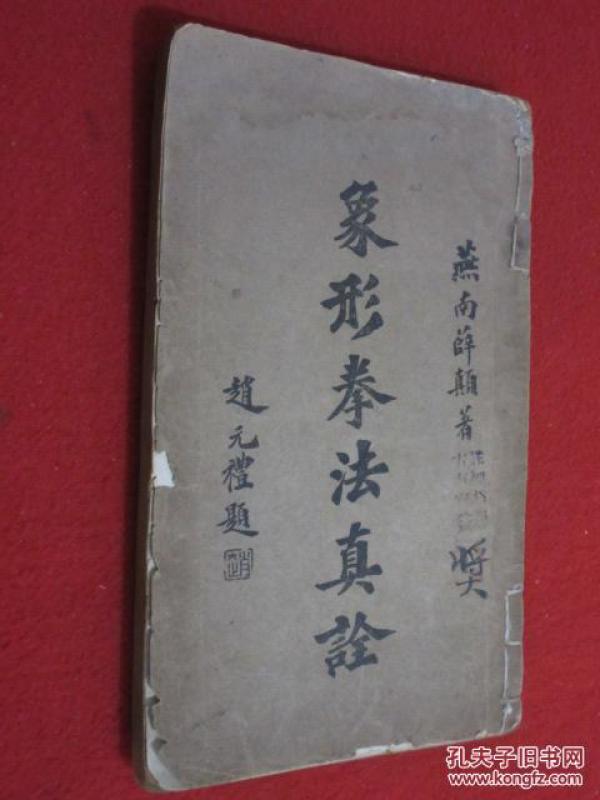 燕南薛顛著
獎
象形拳法真詮
趙元禮題
孔夫子旧书网
www.kongfz.com